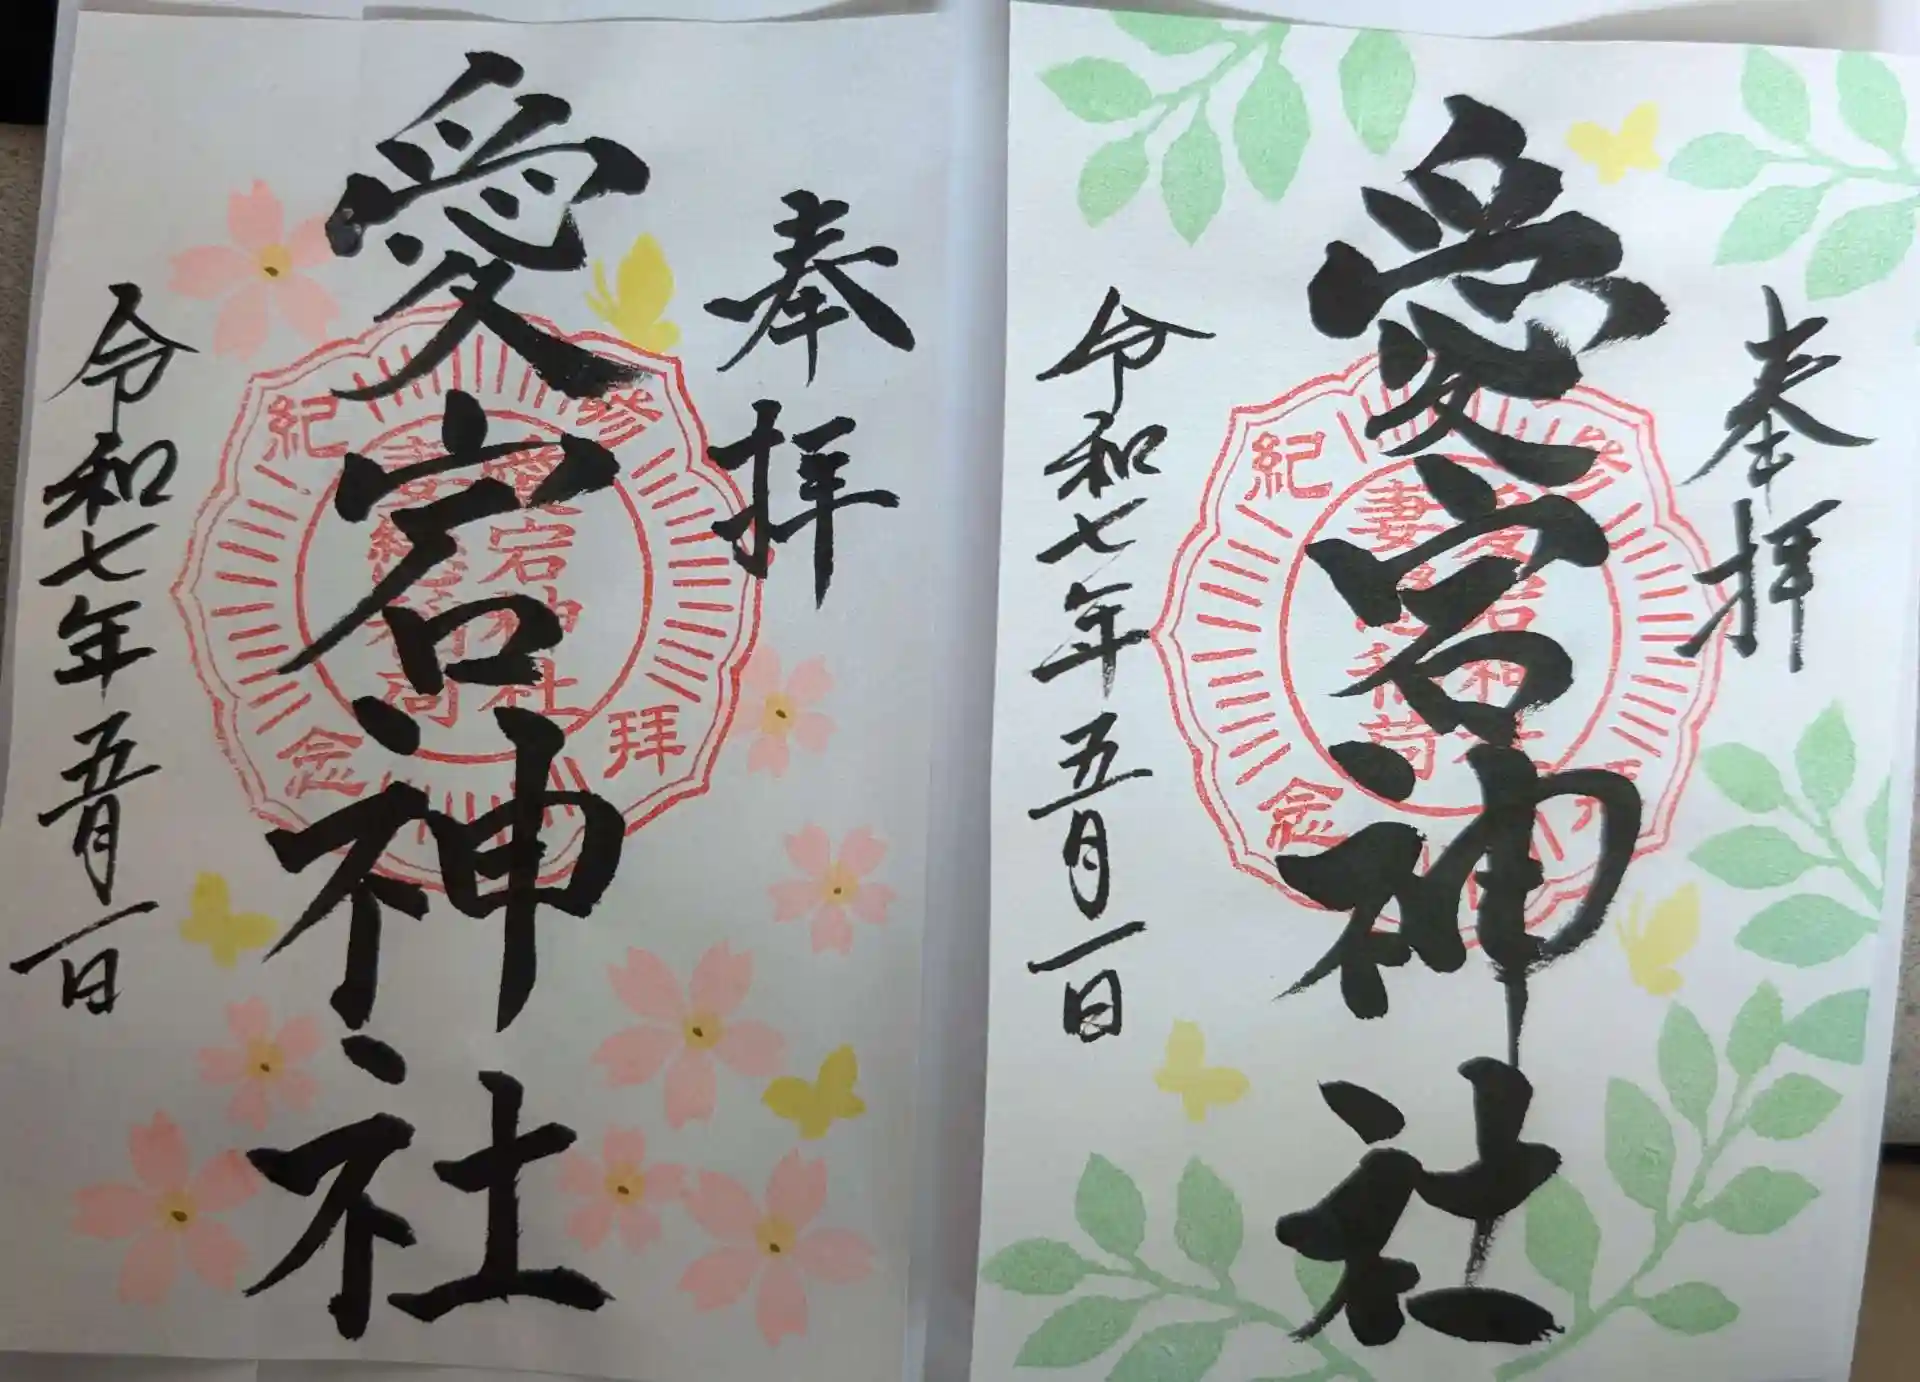 奉拝
愛宕神社
愛宕神社
妻恋稲荷
参拝
紀念
令和七年五月一日
奉拝
愛宕神社
愛宕神社
妻恋稲荷
参拝
紀念
令和七年五月一日